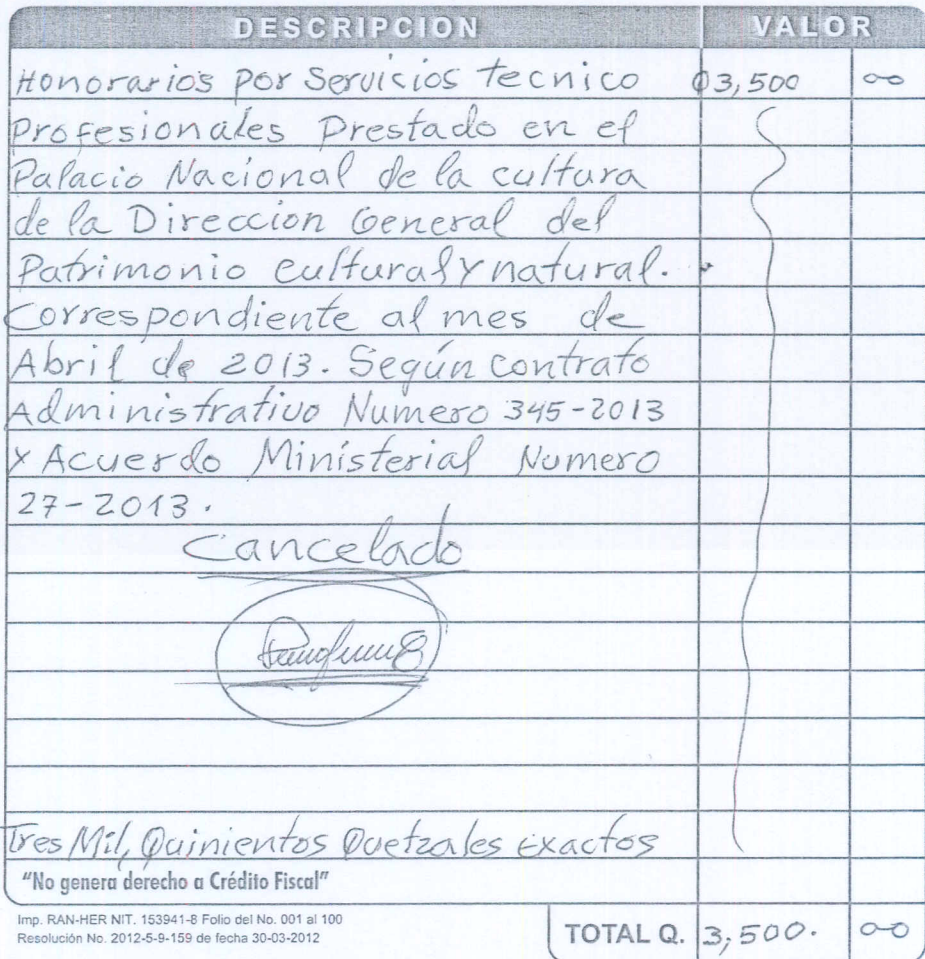 DESCRIPCION VALOR
Honorarios por Servicios tecnico Q3,500 00
Profesionales Prestado en el
Palacio Nacional de la cultura
de la Direccion General del
Patrimonio cultural y natural.
Correspondiente al mes de
Abril de 2013. Según contrato
Administrativo Numero 345-2013
y Acuerdo Ministerial Numero
27-2013.
Cancelado
Tres Mil, Quinientos Quetzales exactos
"No genera derecho a Crédito Fiscal"
Imp. RAN-HER NIT. 153941-8 Folio del No. 001 al 100
Resolución No. 2012-5-9-159 de fecha 30-03-2012
TOTAL Q. 3,500. 00